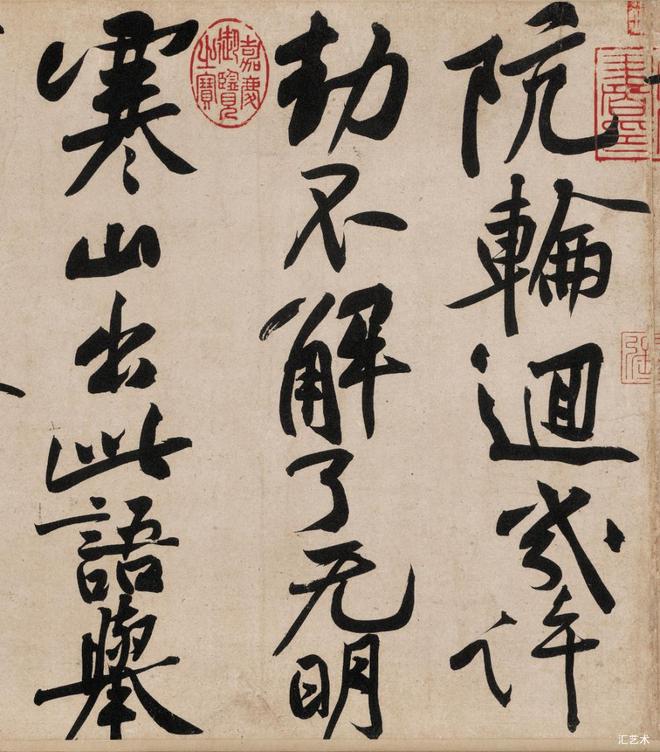 阬輪迴幾許
劫不解了无明
嘉慶御覽之寶
寒山出此語舉
汇艺术